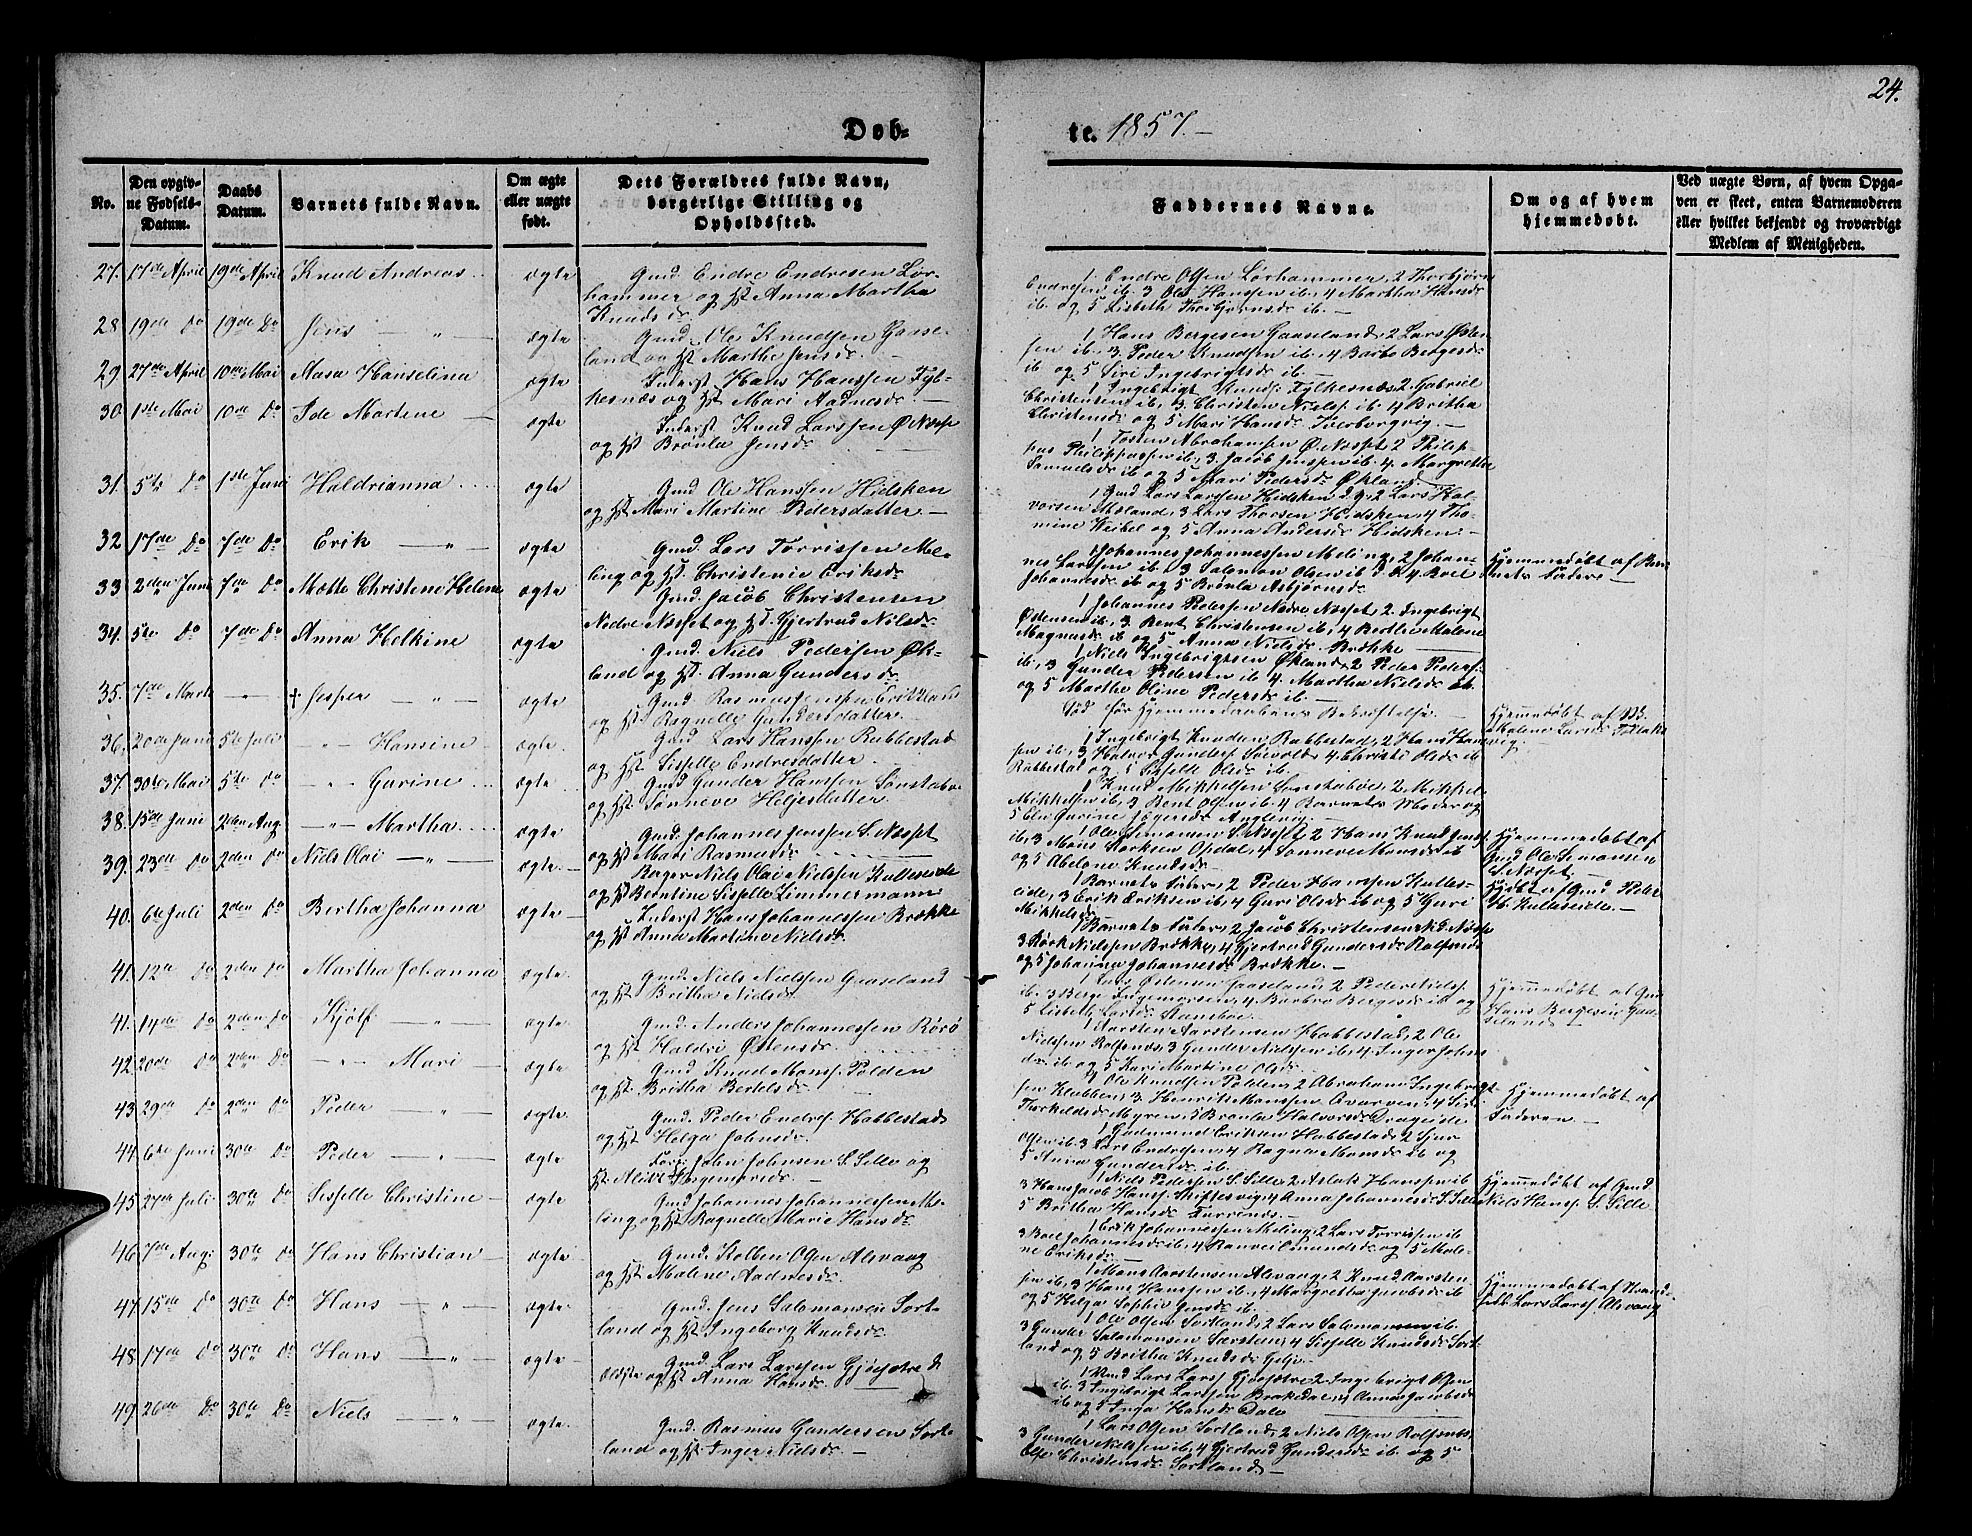 24.
Døb-
te. 1857.-
No.
Den opgiv-
ne Fødsels-
Datum.
Daabs
Datum.
Barnets fulde Navn.
Om ægte
eller uægte
født.
Dets Forældres fulde Navn,
borgerlige Stilling og
Opholdssted.
Faddernes Navne.
Om og af hvem
hjemmedøbt.
Ved uægte Børn, af hvem Opga-
ven er skeet, enten Barnemoderen
eller hvilket bekjendt og troværdigt
Medlem af Menigheden.
27. 17de April 19de April Knud Andreas ægte Gmd. Endre Endresen Lør-
hammer og Hst Anna Martha
Knudsdr.
1. Endre Olsen Lørhammer, 2 Thorbjørn
Endresen ib. 3 Ole Hanssen ib., 4 Martha Hansdr
ib. og 5 Lisbeth Thorbjørnsdr ib.
28 19de Do 19de Do Jens ægte Gmd. Ole Knudsen Gaase-
land og Hst Marthe Jensdr.
1 Hans Bergesen Gaaseland, 2 Lars Østen-
sen ib., 3. Peder Knudsen ib., 4 Barbo Bergesdr
ib og 5 Siri Ingebrigtsdr ib.
29 27de April 10de Mai Aasa Hanselina ægte Inderst Hans Hanssen Fyl-
kesnæs og Hst Mari Aadnesdr.
1 Ingebrigt Fylkesnæs, 2. Gabriel
Christensen ib., 3. Christen Niels. ib. 4 Britha
Christensdr og 5 Mari Hansdr
30. 1ste Mai 10de Do Ide Martene ægte Inderst Knud Larssen Ø. Næsse
og Hst Brønla Jensdr
1 Tosten Abrahamsen Ø. Næsset, 2 Philip-
pus Philippussen ib., 3. Jacob Jenssen ib. 4. Margrethe
Samuelsdr ib og 5 Mari Pedersdr Økland
31. 5te Do 1ste Juni Haldrianna ægte Gmd Ole Hanssen Hidsken
og Hst Mari Martine Pedersdatter.
1 Gmd Lars Larssen Hidsken 2 Lars Hal-
vorsen 3 Lars Thorsen Hidsken, 4 Tho-
mine Weibel og 5 Anna Andersdr Hidsken.
32 17de Do 7de Do Erik ægte Gmd. Lars Torrissen Me-
ling og Hst Christenie Eriksdr
1 Johannes Johannessen Meling, 2 Johan-
nes Larssen ib. 3 Salemon Olsen ib 4. Boel
Johannesdr ib og 5 Brønla Asbjørnsdr
Hjemmedøbt af Bar-
nets Fader
33 2den Juni 7de Do Mette Christene Helene ægte Gmd Jacob Christensen
Nedre Næsset og Hst Gjertrud Nilsdr
1 Johannes Pedersen Nedre Næsset, 2. Ingebrigt
Østensen ib., 3. Bent Christensen ib., 4 Berthe Malene
Magnusdr ib og 5 Anna Nielsdr Brække
34. 5te Do 7de Do Anna Helkine ægte Gmd. Niels Pedersen Øk-
land og Hst Anna Gundersdr
1 Niels Ingebrigtsen Økland, 2 Peder Peders.
ib., 3 Gunder Pedersen ib 4. Martha Nielsdr ib.
og 5 Marthe Oline Pedersdr ib.
35. 7de Marts † Jesper ægte Gmd Rasmus Jenssen
og Hst Ragnelle Gundersdatter.
Død før Hjemmedaabens Bekræftelse.
Hjemmedøbt af
Malene Larsdr
36. 20de Juni 5te Juli Hansine ægte Gmd Lars Hanssen Rubbestad
og Hst Sisselle Endresdatter
1 Ingebrigt Knudsen Rubbestad, 2 Hans Hans-
sen ib, 3 Halvor Gunders. 4 Christi Olsdr ib
Rubbestad og 5 Sisselle Olsdr ib.
37. 30te Mai 5te Do Gurine ægte Gmd Gunder Hanssen Sønstabø
og Hst Sønneve Heljesdatter
1 Knud Mikkelsen Sønstabøe, 2 Mikkel
Mikkelsen ib, 3 Bent Olsen ib. 4 Barnets Moder og
5
38. 15de Juni 2den Aug Martha ægte Gmd Johannes Jenssen S. Næsset
og Hst Mari Rasmusdr
1 Ole Simonsen S. Næsset, 2 Hans Knud Jenss.
ib, 3 Mons Opdal, 4 Sønneve Monsdr ib
og 5 Abelone Knudsdr
Hjemmedøbt af
Gmd Ole Simonsen
S. Næsset.
39. 23de Do 2den Do Niels Olai ægte Bager Niels Olai Nielsen Kulleseide
og Hst Bentine Sisselle Zimmermann
1 Barnets Fader, 2 Peder Hanssen Kulles-
eide, 3 Erik Eriksen ib. 4 Guri Olsdr ib og 5 Guri
Mikkelsdr
Hjdbt af Gmd Peder
Kulleseide.
40. 6te Juli 2den Do Bertha Johanna ægte Inderst Hans Johannessen Brække
og Hst Anna Martine Nielsdr
1 Barnets Fader, 2 Jacob Christensen Nd. Næsse
3 Børk Nielsen Brække, 4 Gjertrud Gundersdr Rolfsnæs
og 5 Johanne Johannesdr Brække.
41. 12te Do 2den Do Martha Johanna ægte Gmd. Niels Nielsen Gaaseland
og Hst Britha Nielsdr
1 Lars Østensen Gaaseland 2 Peder Niels.
ib. 3 Berge Ingemorsen, 4 Barbro Bergesdr ib og
5 Lisbeth Larsdr
Hjemmedøbt af Gmd
Hans Bergesen Gaa-
seland
41. 14de Do 2den Do Kjølf ægte Gmd. Anders Johannessen Rørø
og Hst Haldri Østensdr
1 Aarsten Aarstensen Habbestad, 2 Ole
Nielsen Rolfsnæs, 3 Gunder Nielsen ib, 4 Inger Johns-
dr ib og 5 Kari Martine Olsdr
42. 20de Do 2den Do Mari ægte Gmd Knud Mons. Polden
og Hst Britha Bertelsdr
1 Ole Knudsen Polden, 2 Abraham Ingebrigt-
sen Klubben, 3. Henrik Monssen Avarven, 4 Siri
Thorkildsdr Myren, 5 Brønla Halvorsdr Drageide
Hjemmedøbt af
Faderen.
43. 29de Do 2den Do Peder ægte Gmd Peder Endres. Habbestad
og Hst Helga Johnsdr.
1 Gudmund Eriksen Habbestad, 2 Sjur
Olsen ib. 3 Lars Endresen, 4 Ragna Monsdr ib og
5 Anna Gundersdr ib.
44 6te Juni 30te Do Peder ægte John Johnsen S. Sille og
Hst
1 Niels Pedersen S. Sille, 2 Aslak Hanssen ib
3 Hans Jacob Hans. 4 Anna Johannesdr S. Sille
5 Britha Hansdr
Hjemmedøbt af Gmd.
Niels Hans. S. Sille
45 27de Juli 30te Do Sisselle Christine ægte Gmd Johannes Johannessen Me-
ling og Hst Ragnelle Marie Hansdr
1 Erik Johannessen Meling, 2 Lars Torrissen ib
3 Boel Johannesdr ib, 4 Ranvei Omundsdr og 5 Male-
ne Eriksdr
46 7de Aug 30te Do Hans Christian ægte Gmd. Kolben Olsen Alsvaag
og Hst Malene Aadnesdr.
1 Mons Aarstensen Alsvaag, 2 Knud Aarsten-
sen ib. 3 Hans Hanssen ib., 4 Margretha Jacobsdr ib
og 5 Helga Sophie ib.
Hjemmedøbt af
Lars Lars. Alsvaag
47. 15de Do 30te Do Hans ægte Gmd. Jens Salomonsen Sort-
land og Hst Ingeborg Knudsdr
1 Ole Olsen Sortland, 2 Lars Salomonsen ib.
3 Gunder Salomonsen Særsten, 4 Sisselle Knudsdr Sort-
land og 5 Britha Knudsdr
48 17de Do 30te Do Hans ægte Gmd. Lars Larssen Gjøsætre
og Hst Anna Hansdr
1 Knud Lars Lars. Gjøsætre, 2 Ingebrigt Olsen
ib. 3 Ingebrigt Larssen Brækedal, 4 Anna Jacobsdr
ib og 5 Inga Hansdr Dale
49. 26de Do 30te Do Niels ægte Gmd. Rasmus Gundersen Sort-
land og Hst Inger Nielsdr.
1 Lars Olsen Sortland, 2 Niels Olsen Rolfsnæs
3 Gunder Nielsen ib, 4 Gjertrud Gundersdr ib. og 5
Else Christensdr. Sortland